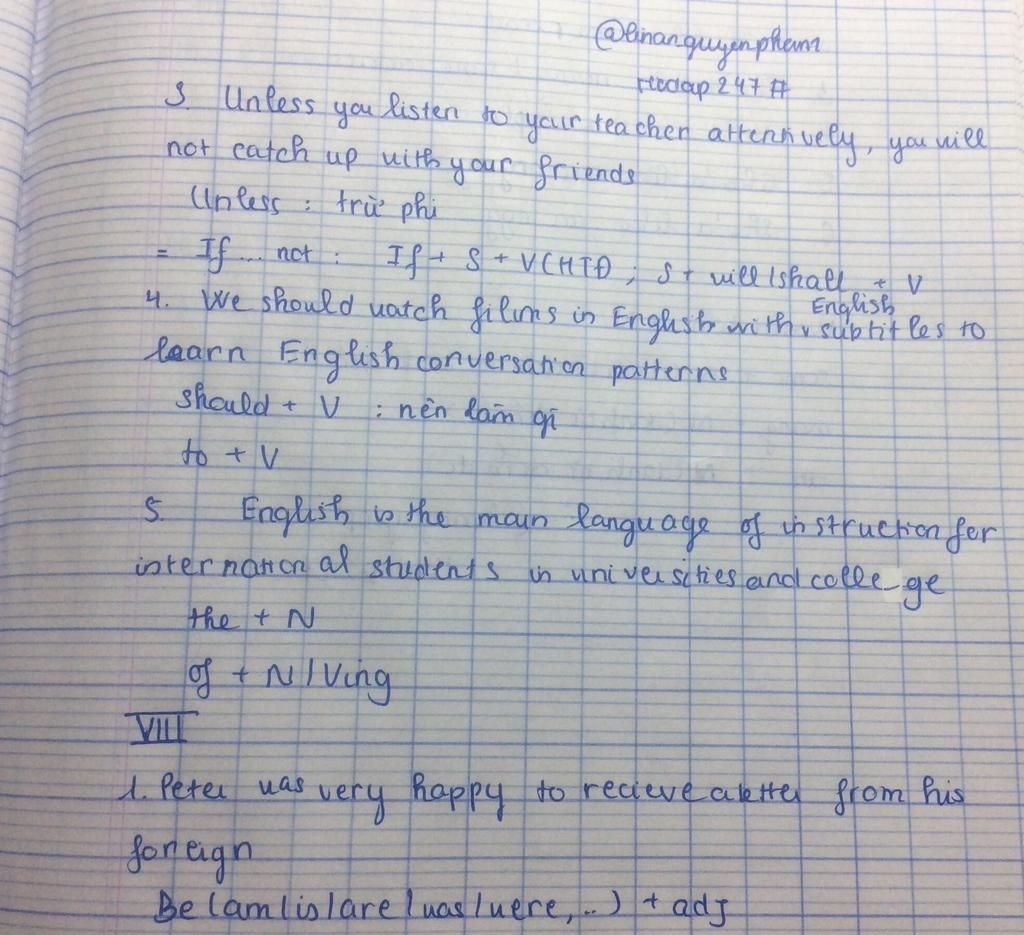 @linanguyenpham
Hoidap 247 #
3. Unless you listen to your teacher attentively, you will
not catch up with your friends
Unless : trừ phi
= If ... not : If + S + V(HTĐ) ; S + will / shall + V
English
4. We should watch films in English with v subtitles to
learn English conversation patterns
should + V : nên làm gì
to + V
5. English is the main language of instruction for
international students in universities and college
the + N
of + N / Ving
VIII
1. Peter was very happy to recieve a letter from his
foreign
Be (am / is / are / was / were, ...) + adj